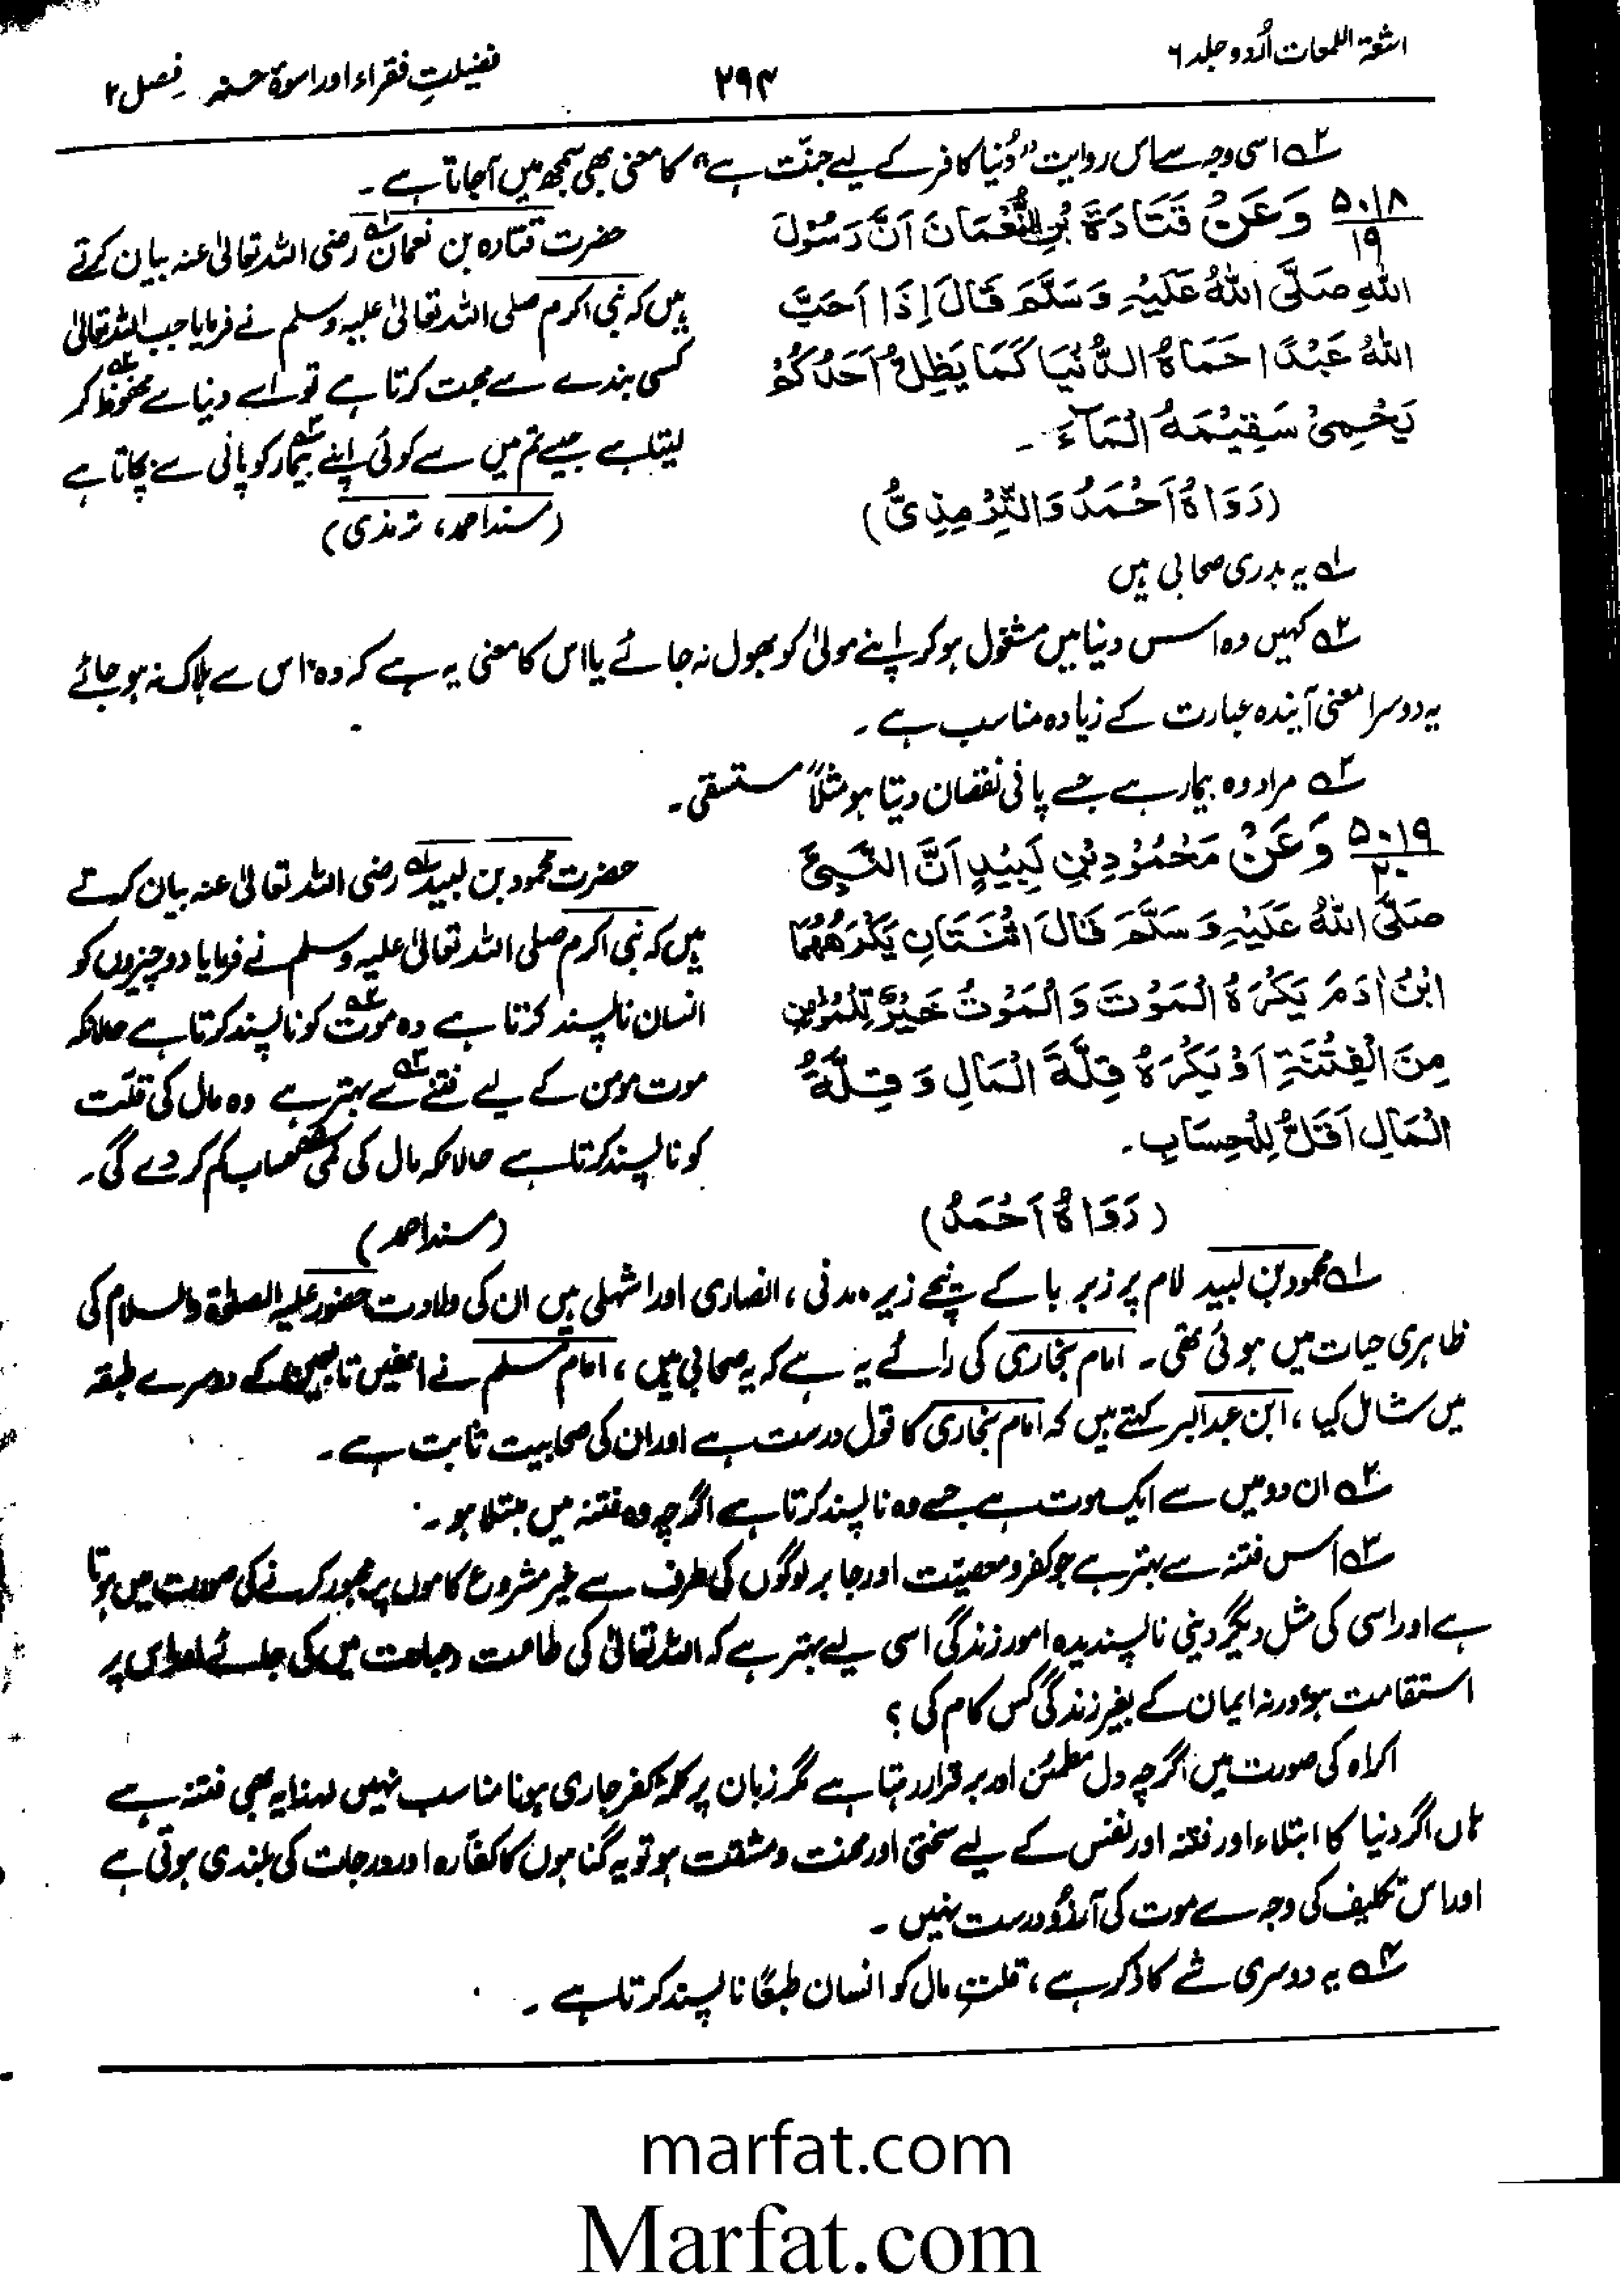 اشعۃ اللمعات اُردو جلد ۶
۲۹۴
فضیلتِ فقراء اور اسوۂ حسنہ فصل ۲
۲؎ اسی وجہ سے اس روایت "دُنیا کافر کے لیے جنّت ہے" کا معنی بھی سمجھ میں آجاتا ہے۔
۵۰۱۸/۱۹ وَعَنْ قَتَادَةَ بْنِ النُّعْمَانَ اَنَّ رَسُوْلَ
اللّٰهِ صَلَّى اللّٰهُ عَلَيْهِ وَسَلَّمَ قَالَ اِذَا اَحَبَّ
اللّٰهُ عَبْدًا حَمَاهُ الدُّنْيَا كَمَا يَظِلُّ اَحَدُكُمْ
يَحْمِىْ سَقِيْمَهُ الْمَآءَ۔
(رَوَاهُ اَحْمَدُ وَالتِّرْمِذِىُّ)
حضرت قتادہ بن نعمان۱؎ رضی اللہ تعالیٰ عنہ بیان کرتے
ہیں کہ نبی اکرم صلی اللہ تعالیٰ علیہ وسلم نے فرمایا جب اللہ تعالیٰ
کسی بندے سے محبت کرتا ہے تو اسے دنیا سے محفوظ۲؎ کر
لیتا ہے جیسے تم میں سے کوئی اپنے بیمار۳؎ کو پانی سے بچاتا ہے
(مسند احمد، ترمذی)
۱؎ یہ بدری صحابی ہیں
۲؎ کہیں وہ اس دنیا میں مشغول ہو کر اپنے مولیٰ کو بھول نہ جائے یا اس کا معنی یہ ہے کہ وہ اس سے ہلاک نہ ہو جائے
یہ دوسرا معنی آیندہ عبارت کے زیادہ مناسب ہے۔
۳؎ مراد وہ بیمار ہے جسے پانی نقصان دیتا ہو مثلاً مستسقی۔
۵۰۱۹/۲۰ وَعَنْ مَحْمُوْدِ بْنِ لَبِيْدٍ اَنَّ النَّبِىَّ
صَلَّى اللّٰهُ عَلَيْهِ وَسَلَّمَ قَالَ اثْنَتَانِ يَكْرَهُهُمَا
ابْنُ اٰدَمَ يَكْرَهُ الْمَوْتَ وَالْمَوْتُ خَيْرٌ لِّلْمُؤْمِنِ
مِنَ الْفِتْنَةِ اَوْ يَكْرَهُ قِلَّةَ الْمَالِ وَقِلَّةُ
الْمَالِ اَقَلُّ لِلْحِسَابِ۔
(رَوَاهُ اَحْمَدُ)
حضرت محمود بن لبید۱؎ رضی اللہ تعالیٰ عنہ بیان کرتے
ہیں کہ نبی اکرم صلی اللہ تعالیٰ علیہ وسلم نے فرمایا دو چیزوں کو
انسان ناپسند کرتا ہے وہ موت۲؎ کو ناپسند کرتا ہے حالانکہ
موت مومن کے لیے فتنے۳؎ سے بہتر ہے وہ مال کی قلّت
کو ناپسند کرتا ہے حالانکہ مال کی کمی حساب کم کر دے گی۔
(مسند احمد)
۱؎ محمود بن لبید لام پر زبر با کے نیچے زیر، مدنی، انصاری اور اشہلی ہیں ان کی ولادت حضور علیہ الصلوٰۃ والسلام کی
ظاہری حیات میں ہوئی تھی۔ امام بخاری کی رائے یہ ہے کہ یہ صحابی ہیں، امام مسلم نے انھیں تابعین کے دوسرے طبقہ
میں شامل کیا، ابن عبدالبر کہتے ہیں کہ امام بخاری کا قول درست ہے اور ان کی صحابیت ثابت ہے۔
۲؎ ان دو میں سے ایک موت ہے جسے وہ ناپسند کرتا ہے اگرچہ وہ فتنہ میں مبتلا ہو۔
۳؎ اس فتنہ سے بہتر ہے جو کفر و معصیّت اور جابر لوگوں کی طرف سے غیر مشروع کاموں پر مجبور کرنے کی صورت میں ہوتا
ہے اور اسی کی مثل دیگر دینی ناپسندیدہ امور زندگی اسی لیے بہتر ہے کہ اللہ تعالیٰ کی طاعت و عبادت میں کی جائے اور اس پر
استقامت ہو ورنہ ایمان کے بغیر زندگی کس کام کی؟
اکراہ کی صورت میں اگرچہ دل مطمئن اور برقرار رہتا ہے مگر زبان پر کلمۂ کفر جاری ہونا مناسب نہیں لہذا یہ بھی فتنہ ہے
ہاں اگر دنیا کا ابتلاء اور فتنہ اور نفس کے لیے سختی اور محنت و مشقت ہو تو یہ گناہوں کا کفّارہ اور درجات کی بلندی ہوتی ہے
اور اس تکلیف کی وجہ سے موت کی آرزو درست نہیں۔
۴؎ یہ دوسری شے کا ذکر ہے، قلتِ مال کو انسان طبعًا ناپسند کرتا ہے۔
marfat.com
Marfat.com